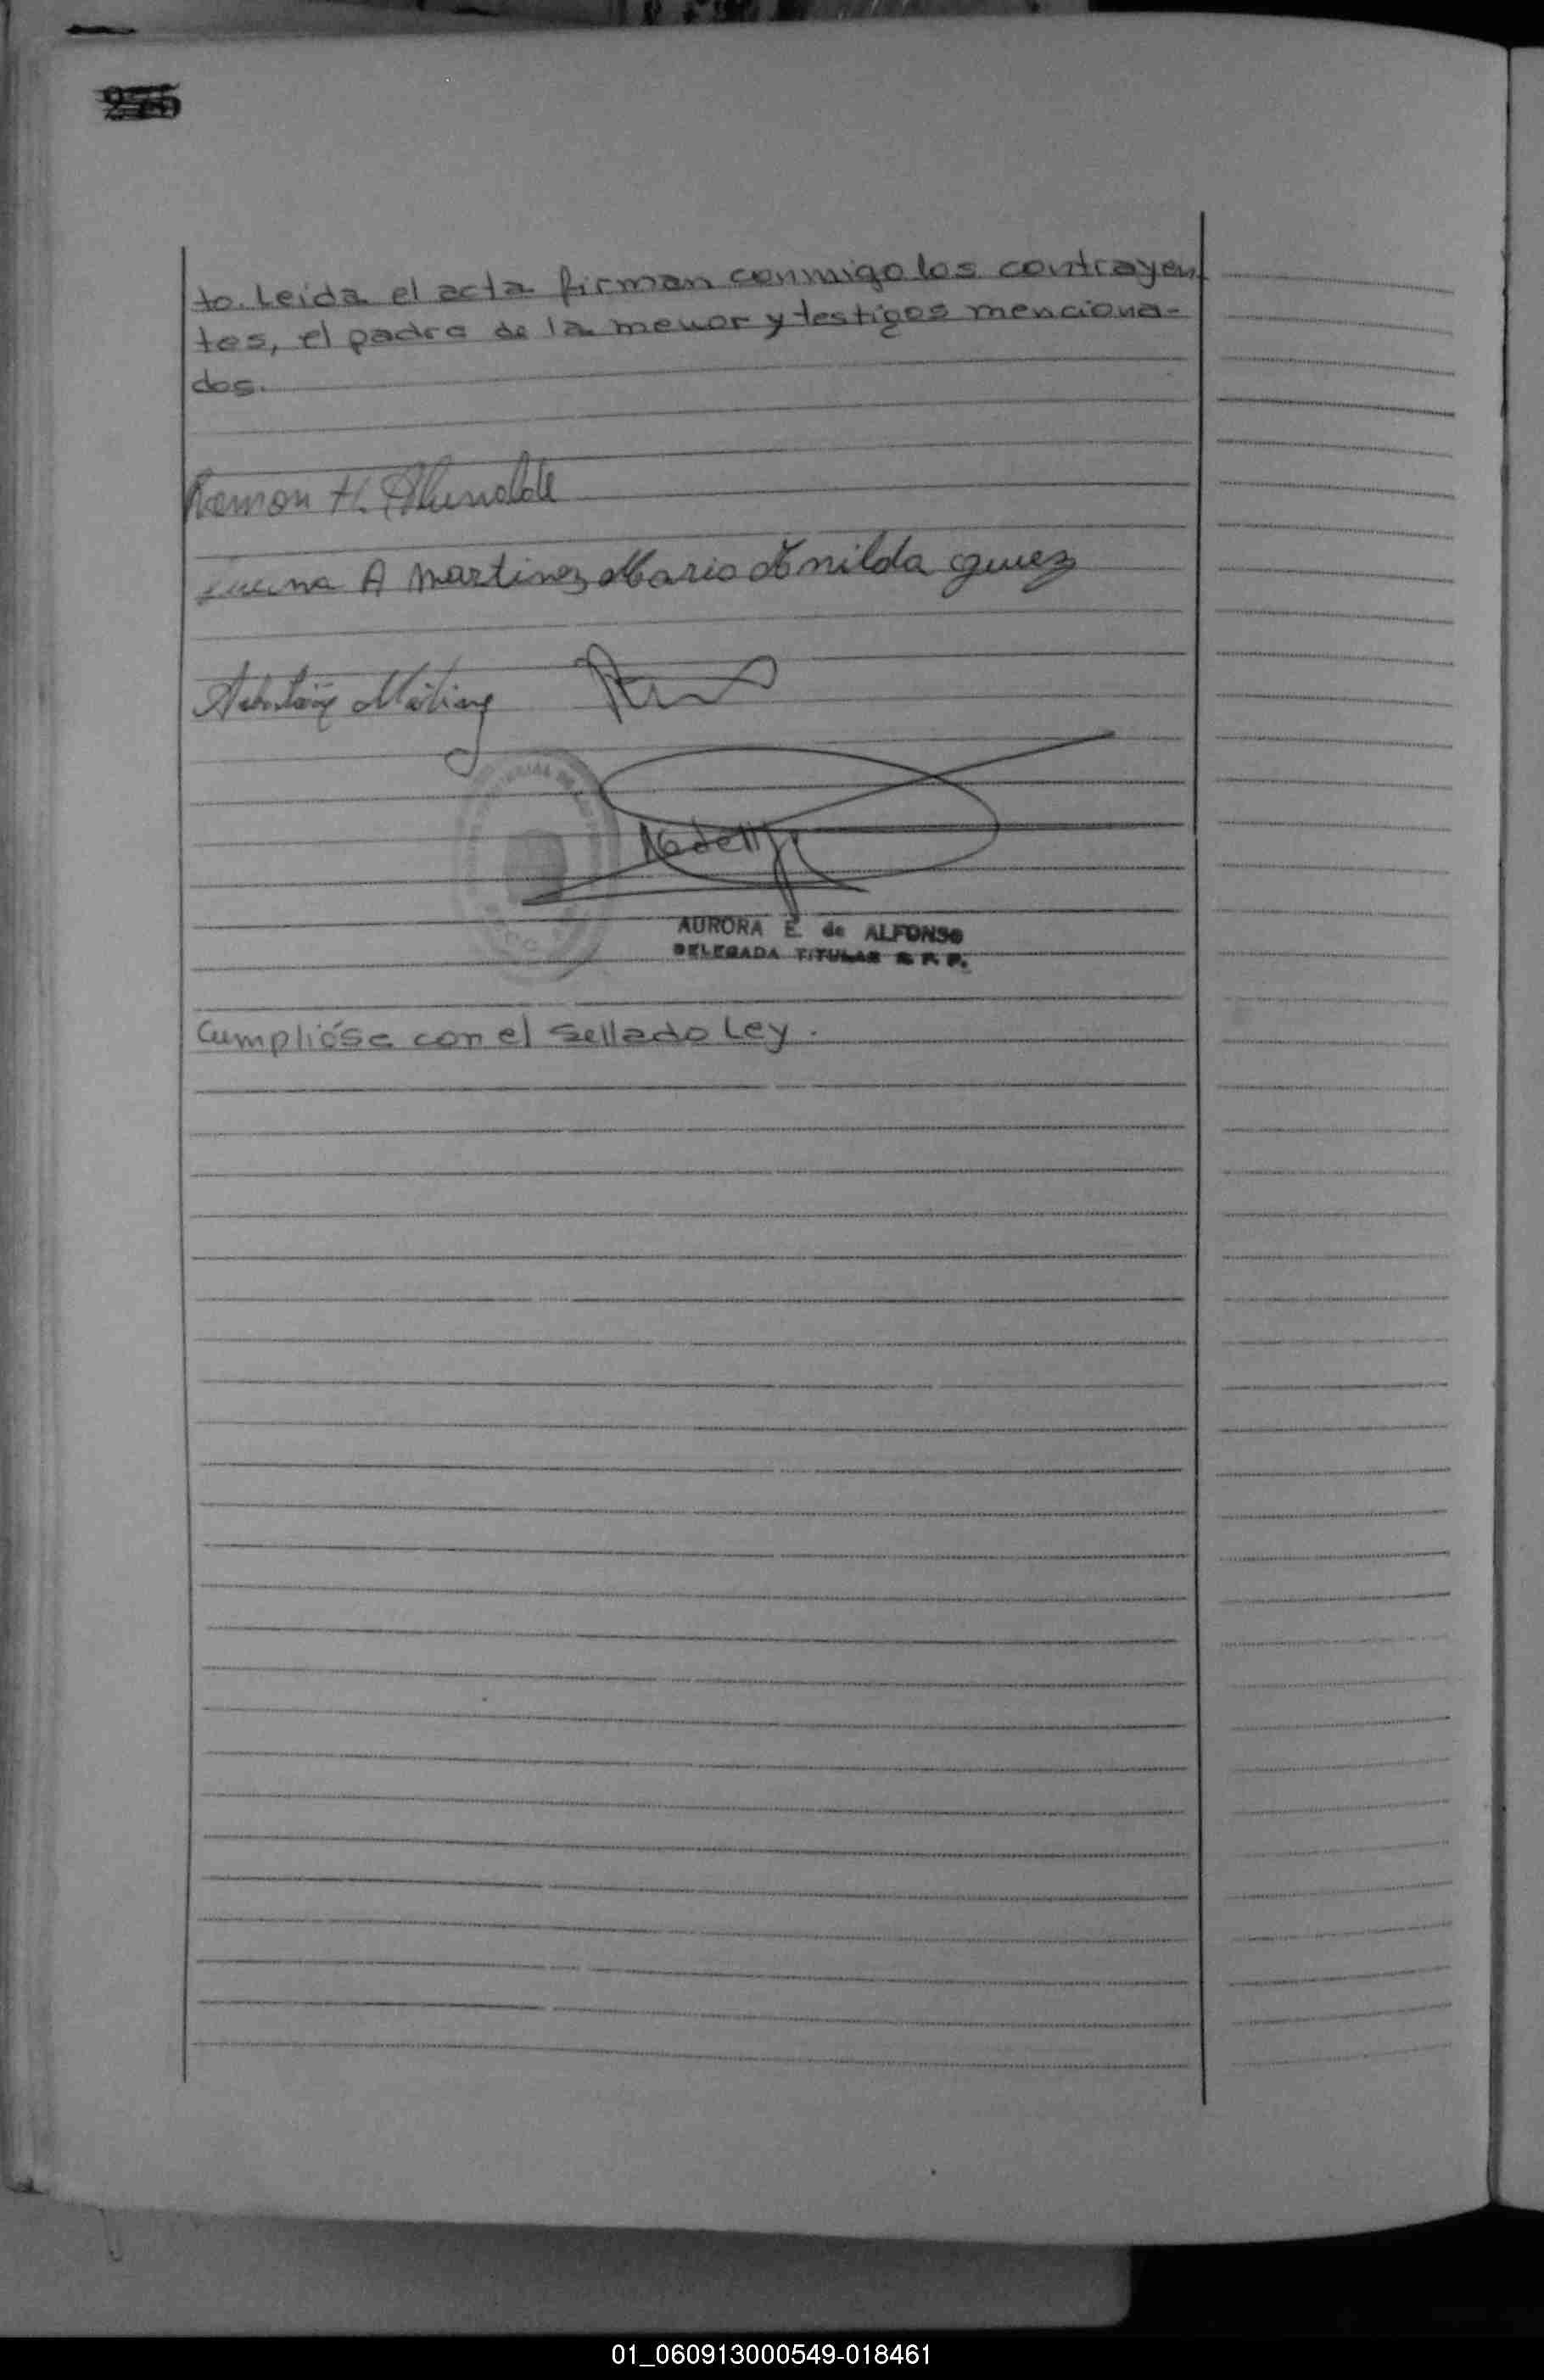 to. Leida el acta firman conmigo los contrayen
tes, el padre de la menor y testigos menciona-
dos.
Ramon H.
A Martinez Maria Enilda
AURORA E. de ALFONSO
DELEGADA TITULAR R. P. P.
Cumplióse con el sellado Ley.
01_060913000549-018461